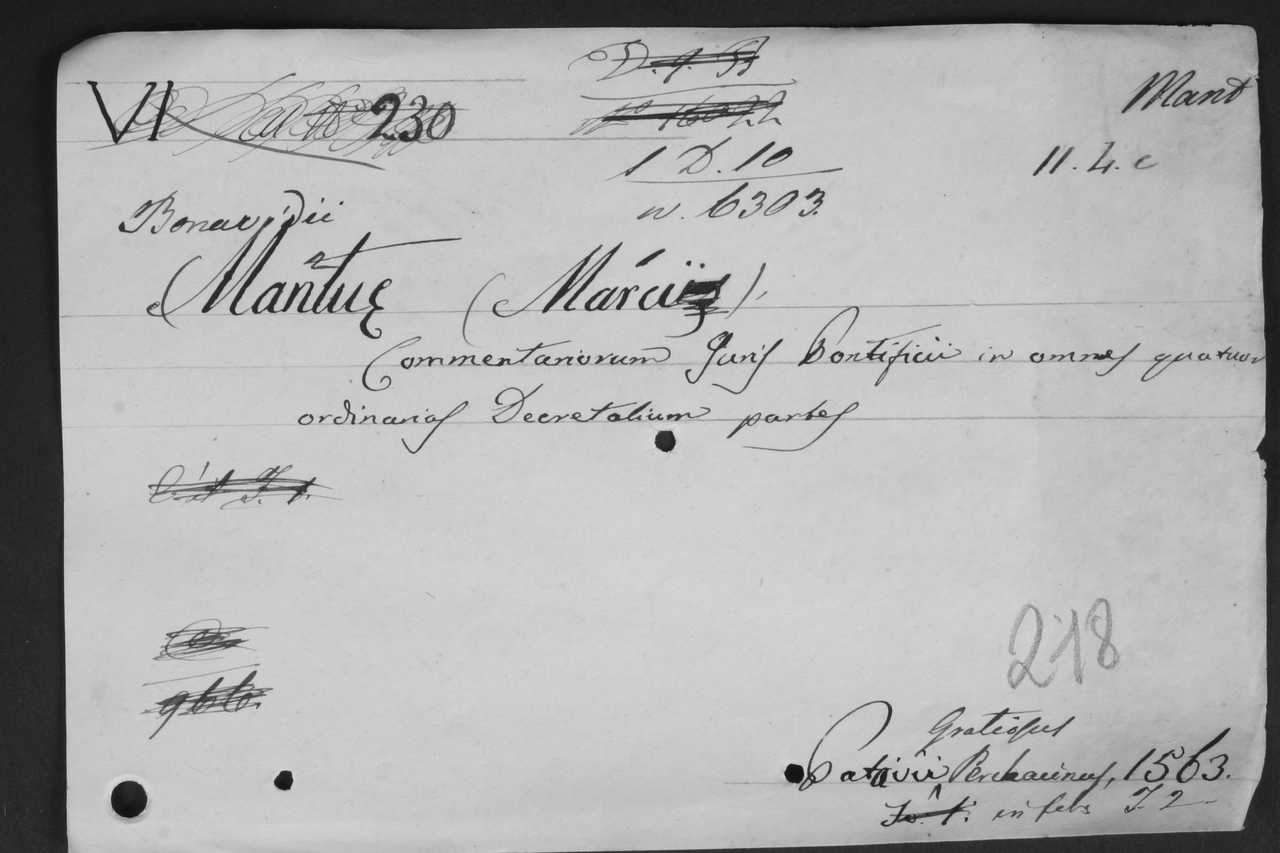 VI 230
D. 9.
Mant
1 D. 10
n. 6303.
11. 4. c
Bonavidii
Mantuę (Marcii),
Commentariorum Juris Pontificii in omnes quatuor
ordinarias Decretalium partes
966.
218
Gratiosus
Patavii Perchacinus, 1563.
in febr T. 2